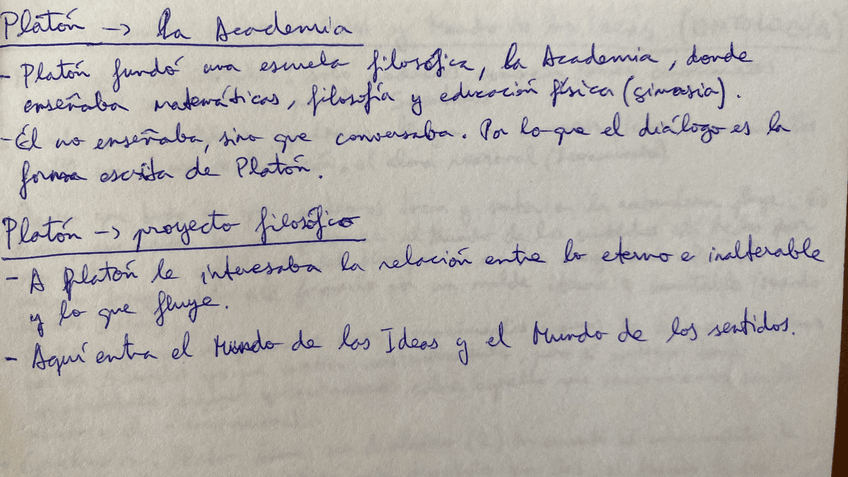 Platón -> La Academia
- Platón fundó una escuela filosófica, la Academia, donde
enseñaba matemáticas, filosofía y educación física (gimnasia).
- Él no enseñaba, sino que conversaba. Por lo que el diálogo es la
forma escrita de Platón.
Platón -> proyecto filosófico
- A Platón le interesaba la relación entre lo eterno e inalterable
y lo que fluye.
- Aquí entra el Mundo de las Ideas y el Mundo de los sentidos.